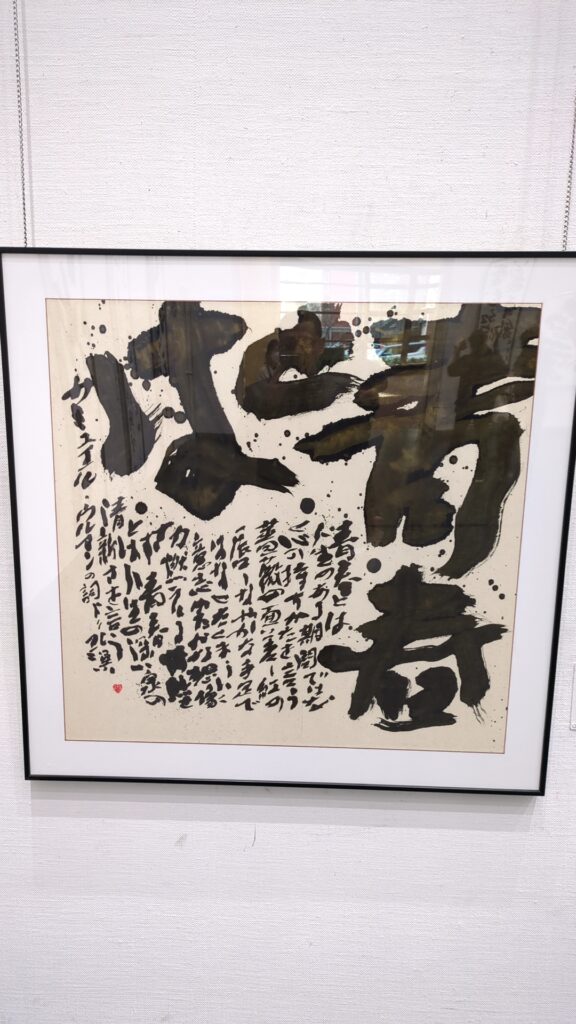 青春
とは
青春とは
人生のある期間ではなく
心の持ちかたを言う
薔薇の面差し紅の
唇しなやかな手足で
はなくたくましい
意志豊かな想像
力燃える情熱
青春
とは人生の深い泉の
清新さを言う
サミュエル・ウルマンの詞より